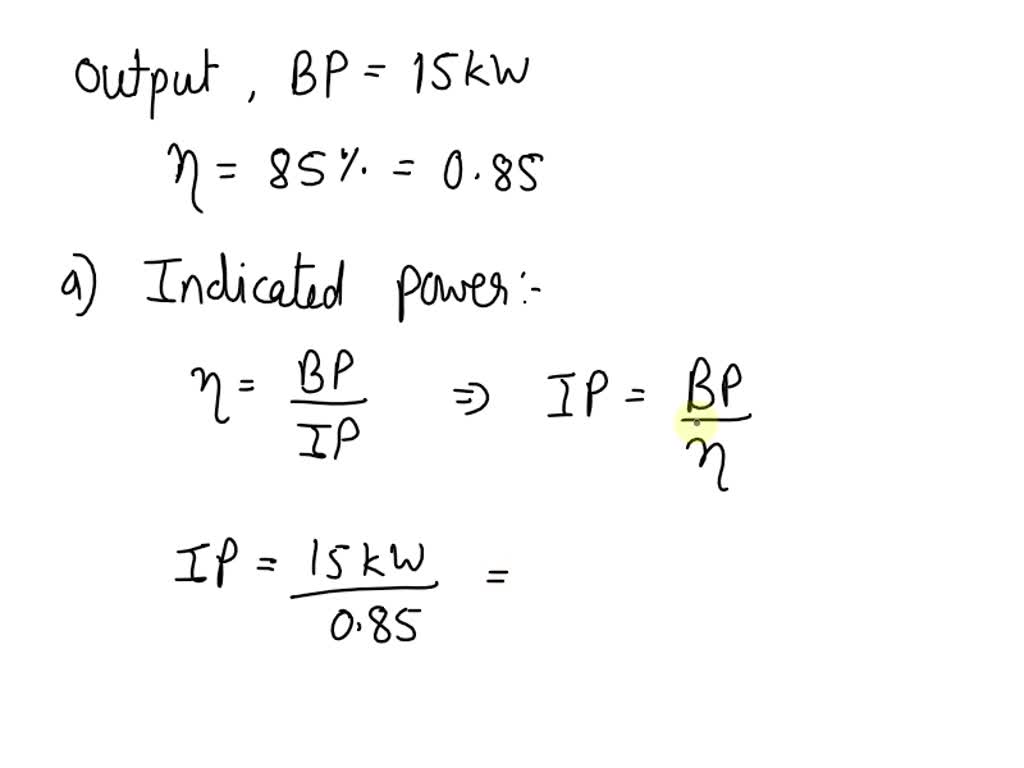 output, BP = 15kW
η = 85% = 0.85
a) Indicated power:-
η = BP/IP ⇒ IP = BP/η
IP = 15kW/0.85 =